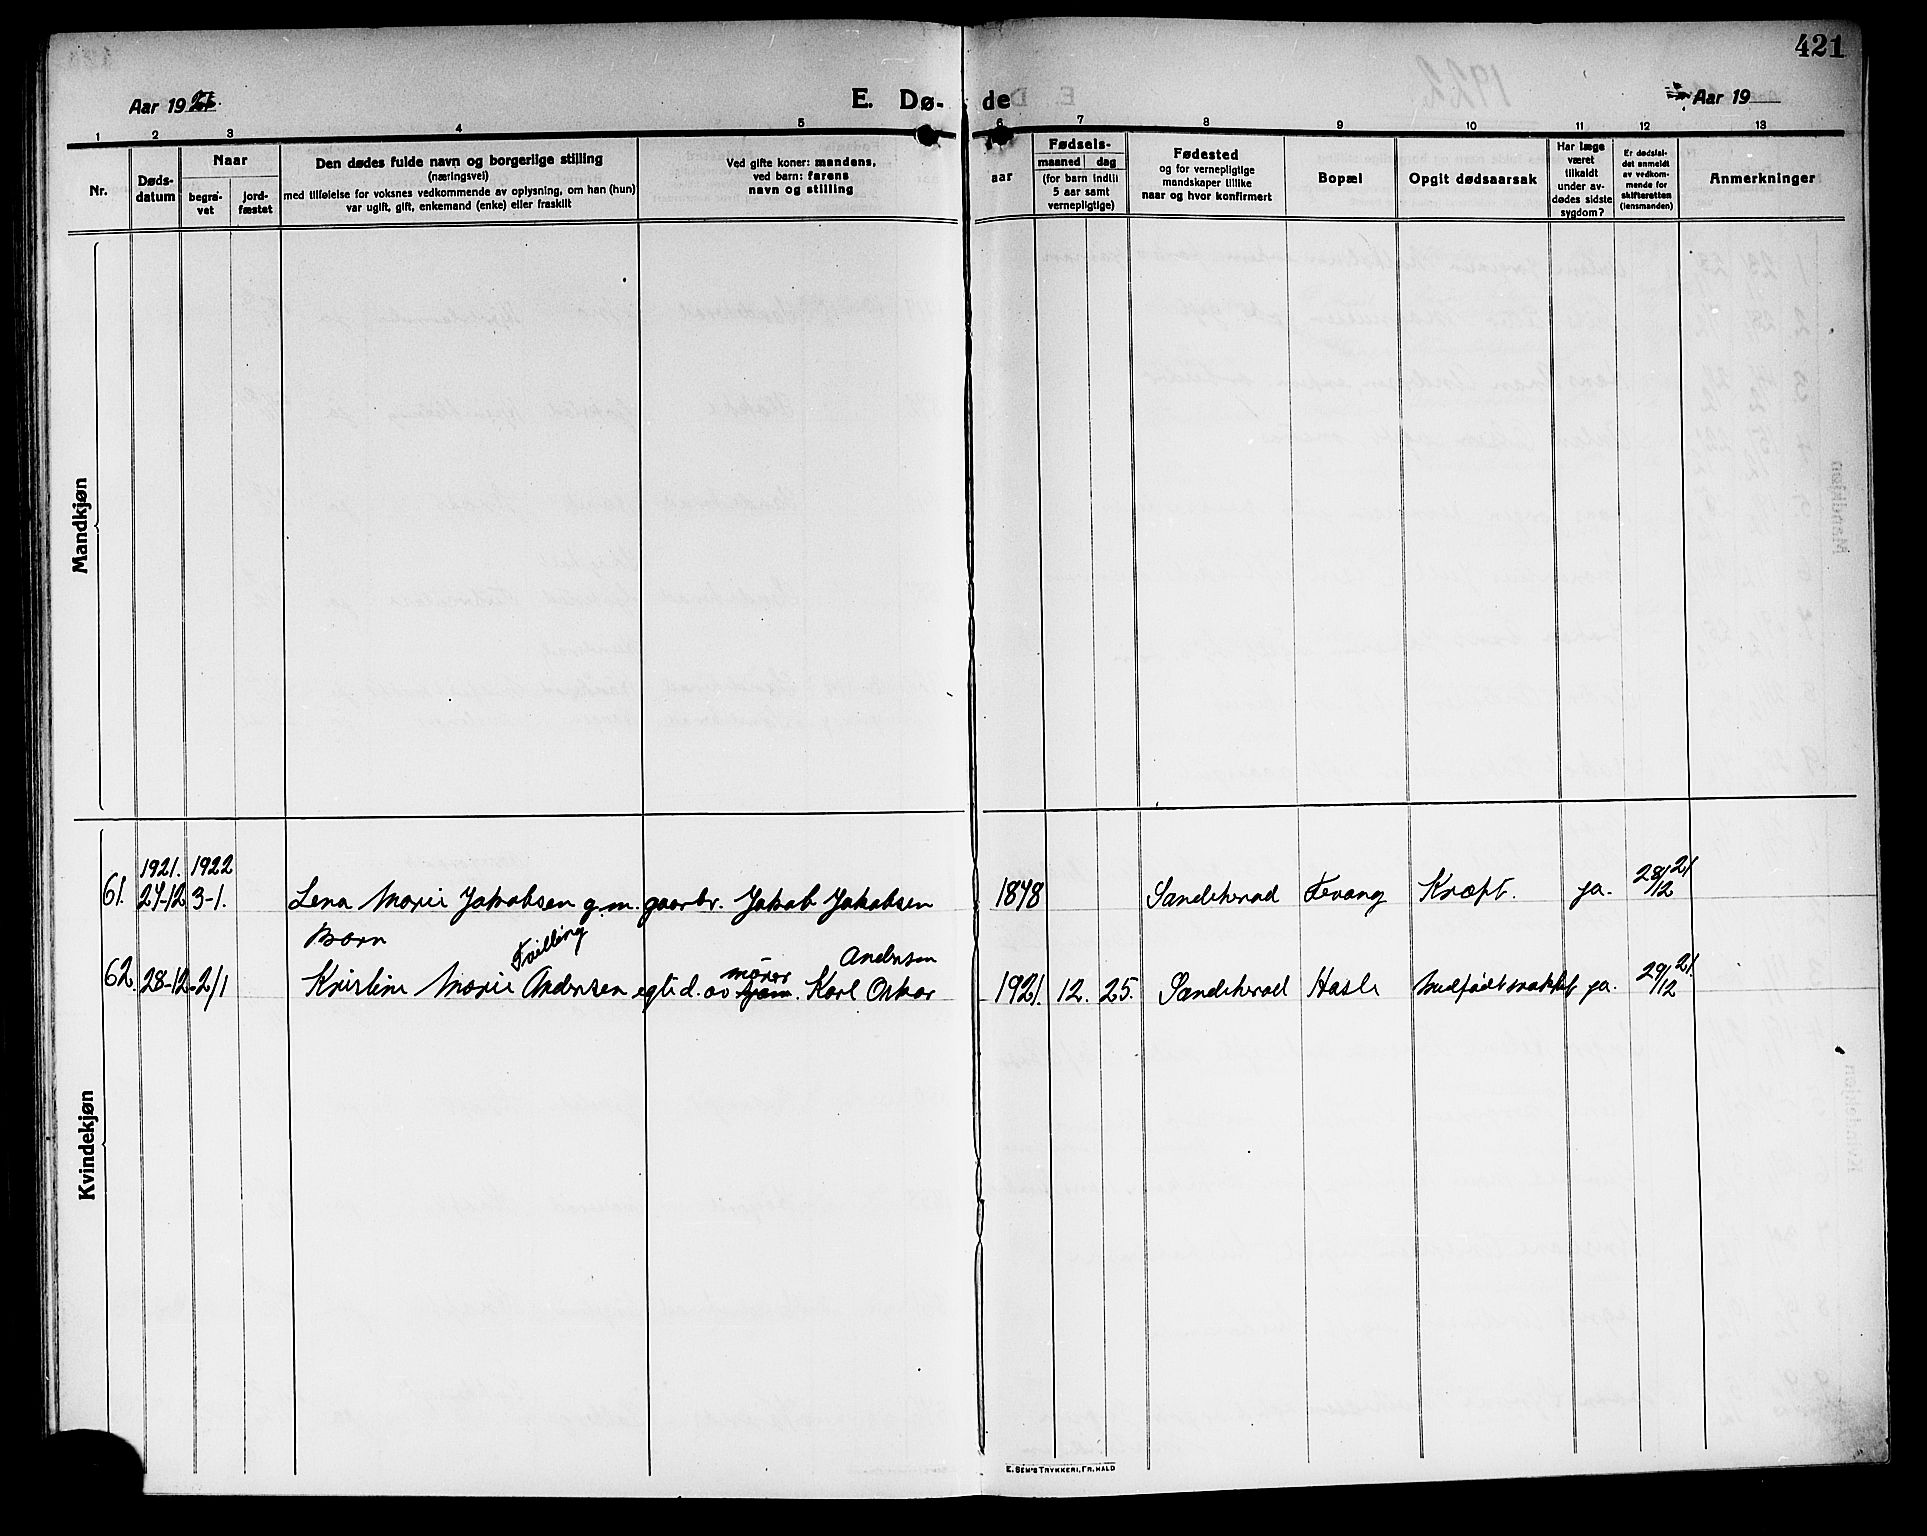 421
Aar 1921.
E. Dø- de
Aar 19
1 2 3 4 5 6 7 8 9 10 11 12 13
Nr.
Døds-
datum
Naar
begra-
vet
jord-
fæstet
Den dødes fulde navn og borgerlige stilling
(næringsvei)
med tilføielse for voksnes vedkommende av oplysning, om han (hun)
var ugift, gift, enkemand (enke) eller fraskilt
Ved gifte koner: mandens,
ved barn: farens
navn og stilling
Fødsels-
aar
maaned dag
(for barn indtil
5 aar samt
vernepligtige)
Fødested
og for vernepligtige
mandskaper tillike
naar og hvor konfirmert
Bopæl
Opgit dødsaarsak
Har læge
været
tilkaldt
under av-
dødes sidste
sygdom?
Er dødsfal-
det anmeldt
av vedkom-
mende for
skifteretten
(lensmanden)
Anmerkninger
Mandkjøn
1921. 1922
61. 27-12 3-1. Lena Marie Jakobsen g.m. gaarbr. Jakob Jakobsen 1878 Sandeherad Fevang Kræft. ja. 28/12 21
Barn
Tvilling
Andersen
murer
62. 28-12 2/1 Kristine Marie Andersen egtd. av Karl Oskar 1921. 12. 25. Sandeherad Hasle Medfødt svakhet ja. 29/12 21.
Kvindekjøn
E. SEM'S TRYKKERI, FR.HALD